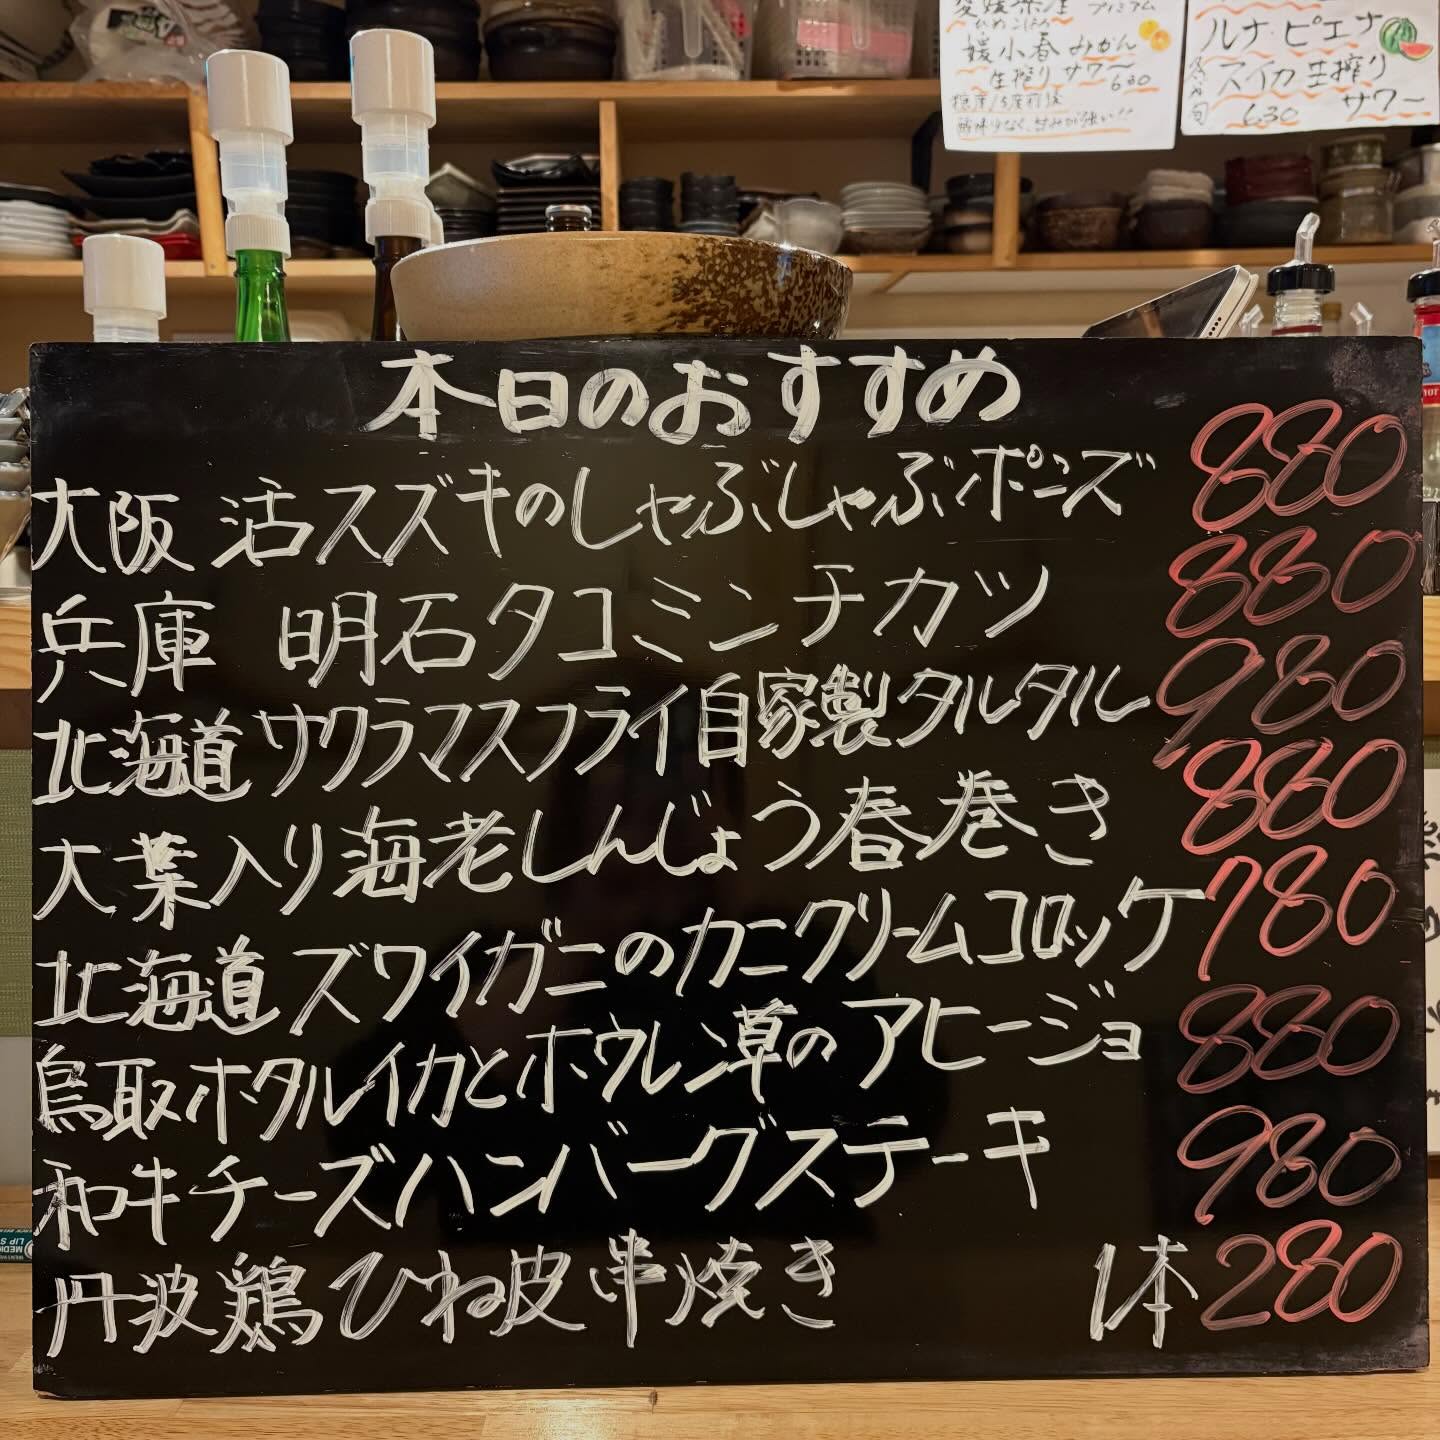 媛小春みかん
生搾りサワー
630
ルナ・ピエナ
スイカ生搾り
630 サワー
本日のおすすめ
大阪 活スズキのしゃぶしゃぶポンズ 880
兵庫 明石タコミンチカツ 880
北海道サクラマスフライ自家製タルタル 980
大葉入り海老しんじょう春巻き 880
北海道ズワイガニのカニクリームコロッケ 780
鳥取ホタルイカとホウレン草のアヒージョ 880
和牛チーズハンバーグステーキ 980
丹波鶏ひね皮串焼き 1本280